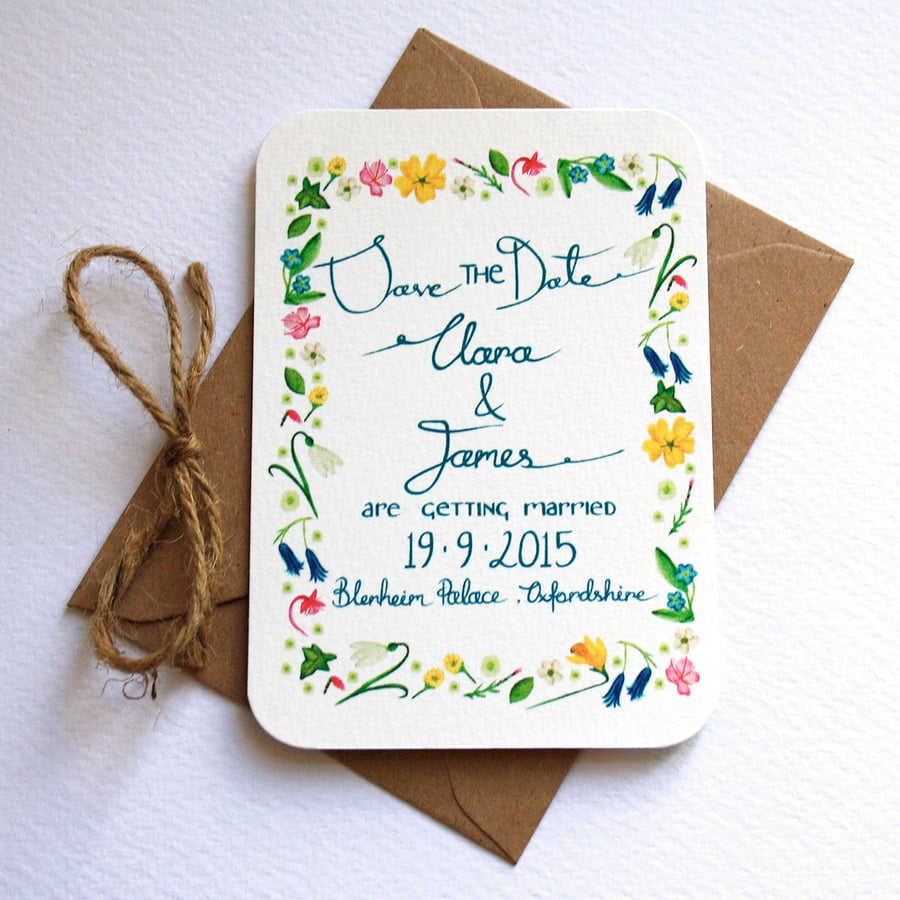 Save THE Date
Clara
&
James
are GETTING married
19·9·2015
Blenheim Palace, Oxfordshire